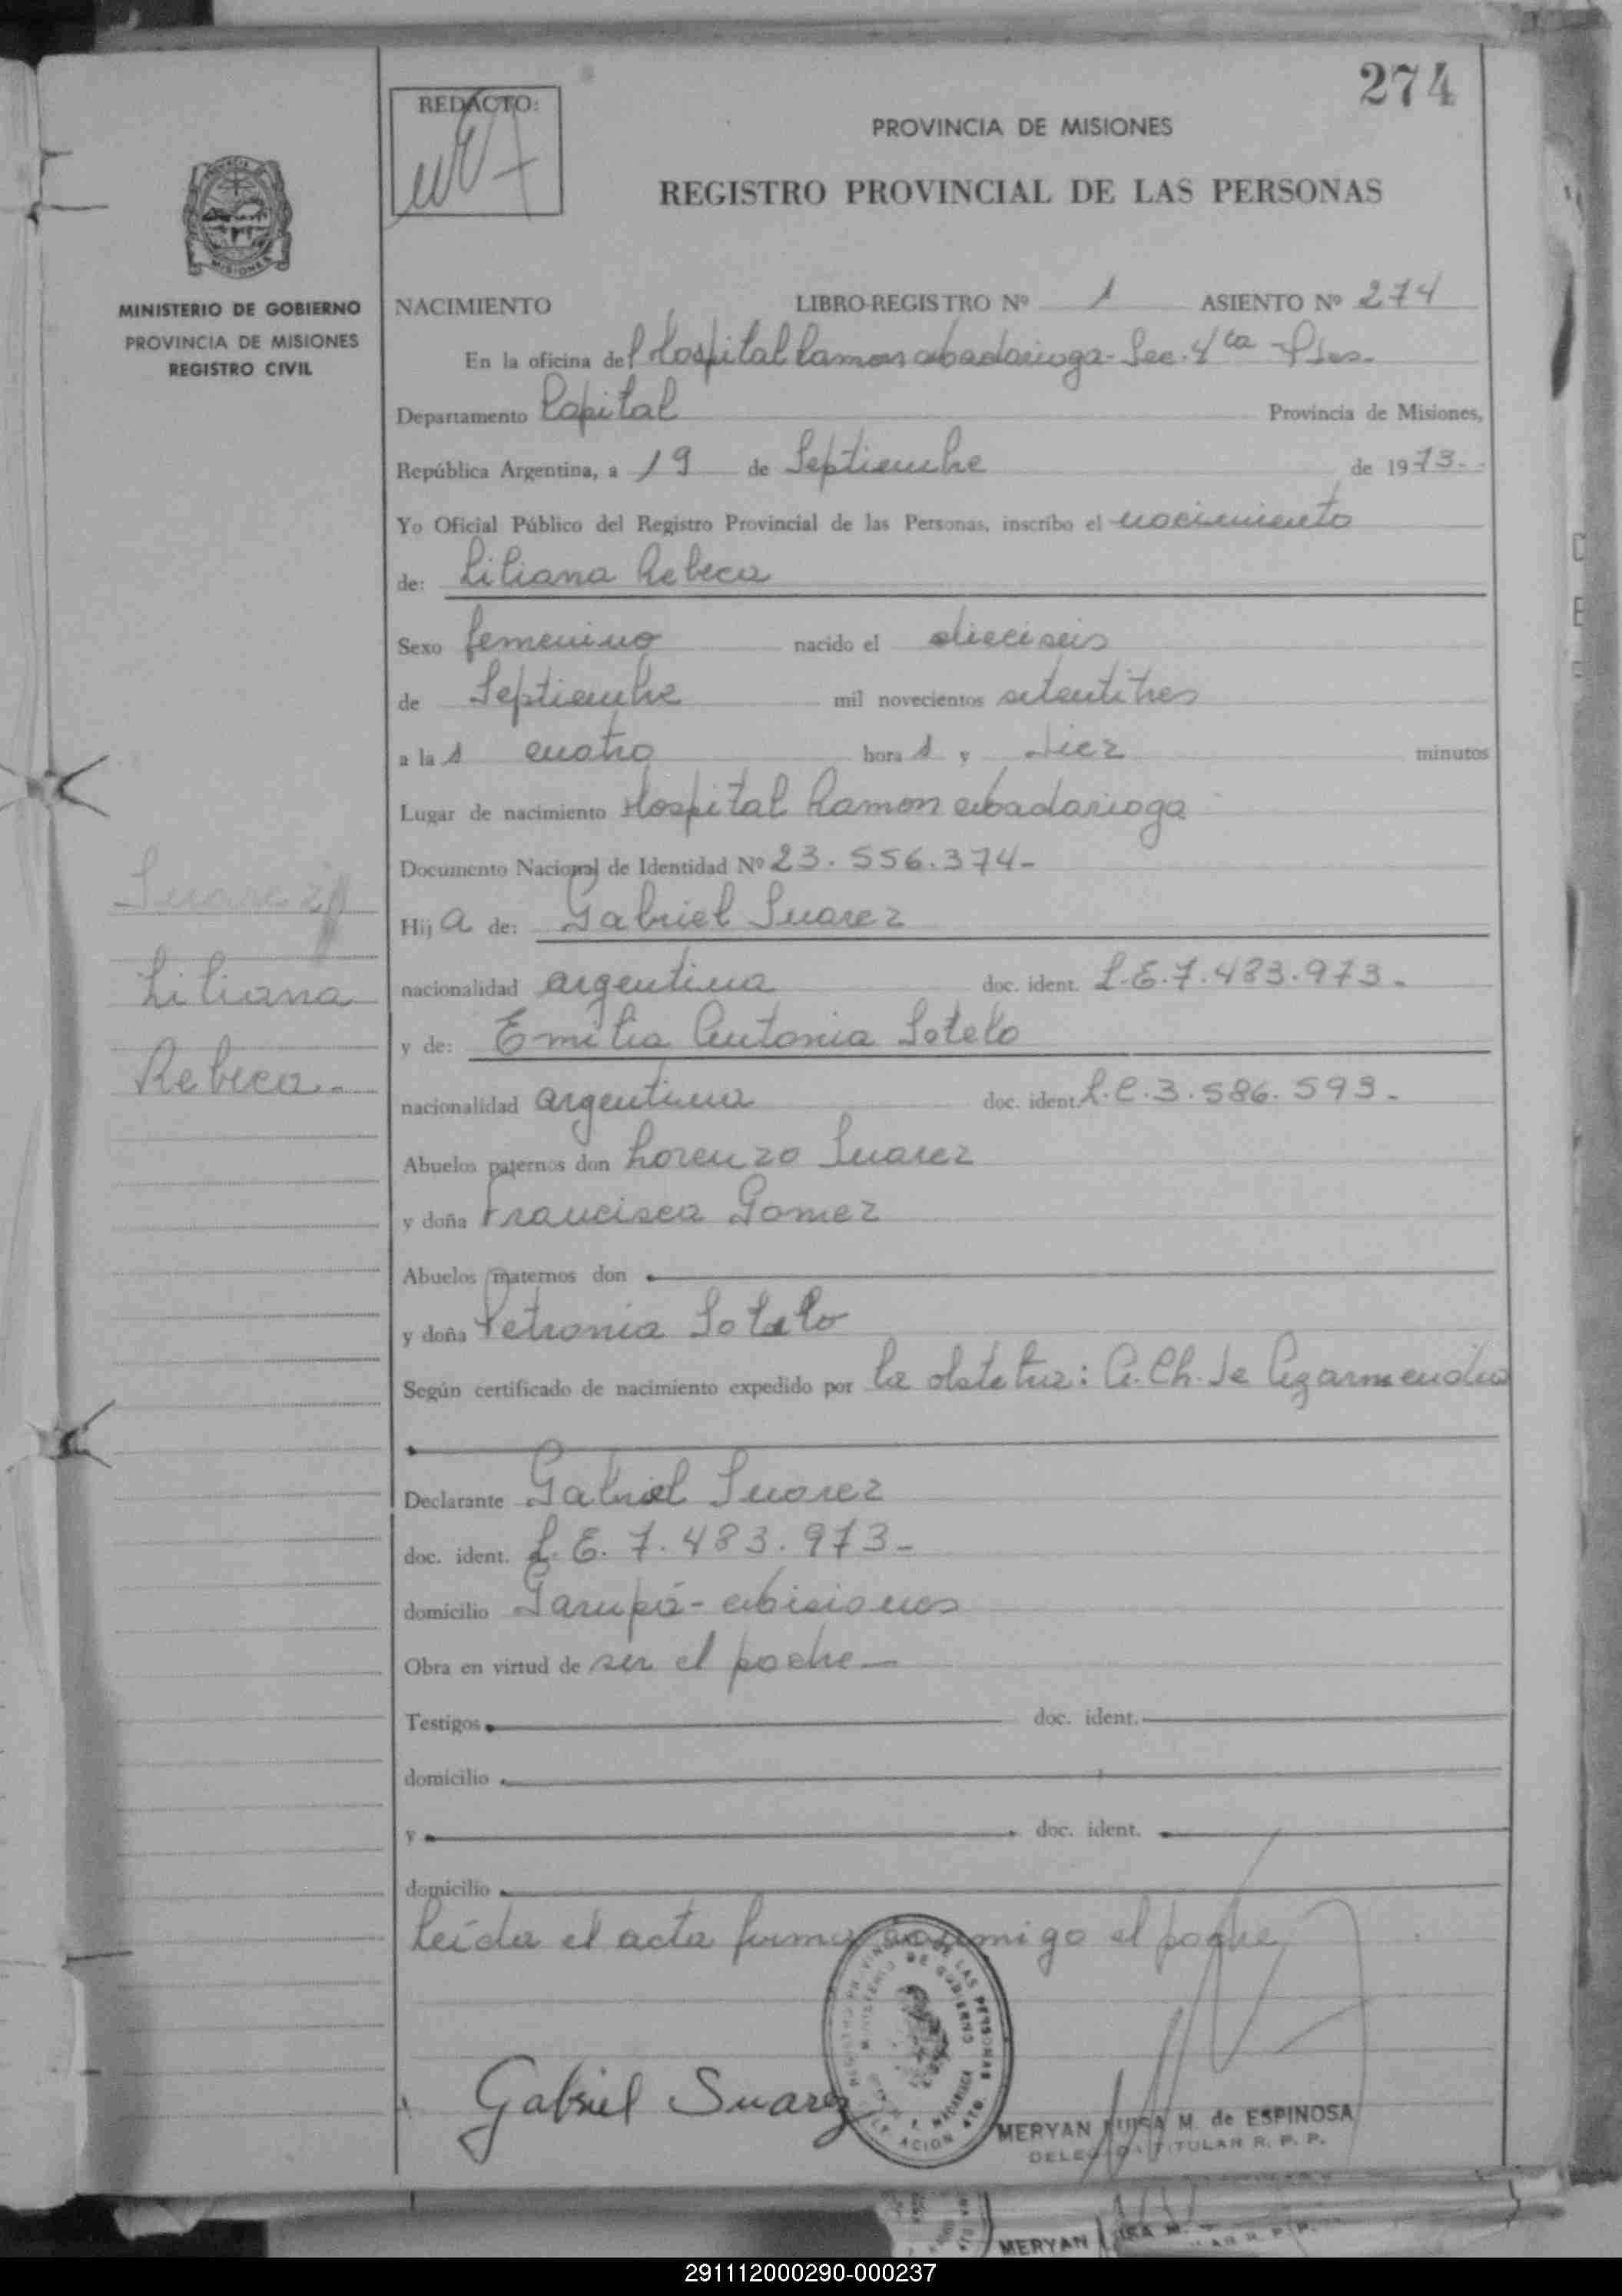 274
REDACTO:
PROVINCIA DE MISIONES
REGISTRO PROVINCIAL DE LAS PERSONAS
MINISTERIO DE GOBIERNO
PROVINCIA DE MISIONES
REGISTRO CIVIL
NACIMIENTO LIBRO-REGISTRO Nº 1 ASIENTO Nº 274
En la oficina del Hospital Ramon Madariaga - Sec. 4ta - Pdas.
Departamento Capital Provincia de Misiones,
República Argentina, a 19 de Septiembre de 1973.-
Yo Oficial Público del Registro Provincial de las Personas, inscribo el nacimiento
de: Liliana Rebeca
Sexo femenino nacido el dieciseis
de Septiembre mil novecientos setentitres
a las cuatro horas y diez minutos
Lugar de nacimiento Hospital Ramon Madariaga
Documento Nacional de Identidad Nº 23.556.374-
Hija de: Gabriel Suarez
nacionalidad argentina doc. ident. L.E. 7.483.973.-
y de: Emilia Antonia Sotelo
nacionalidad argentina doc. ident. L.C. 3.586.593.-
Abuelos paternos don Lorenzo Suarez
y doña Francisca Gomez
Abuelos maternos don
y doña Petronia Sotelo
Según certificado de nacimiento expedido por la obstetra: A. Ch. de Azarmendia
Declarante Gabriel Suarez
doc. ident. L.E. 7.483.973-
domicilio Garupá - Misiones
Obra en virtud de ser el padre
Testigos doc. ident.
domicilio
y doc. ident.
domicilio
Leída el acta firma conmigo el padre
Suarez
Liliana
Rebeca.-
Gabriel Suarez
MINISTERIO DE GOBIERNO
MERYAN LUISA M. de ESPINOSA
DELEGADA TITULAR R. P. P.
MERYAN
291112000290-000237